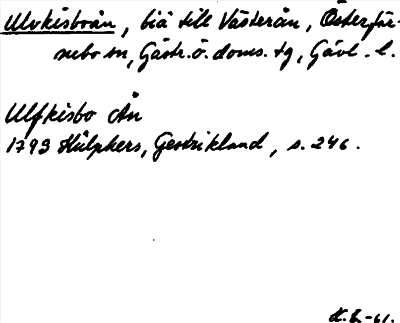 Ulvkisboån, biå till Västerån, Österfär-
nebo sn, Gästr. ö. doms. tg, Gävl. l.
Ulfkisbo Ån
1793 Hülphers, Gestrikland, s. 246.